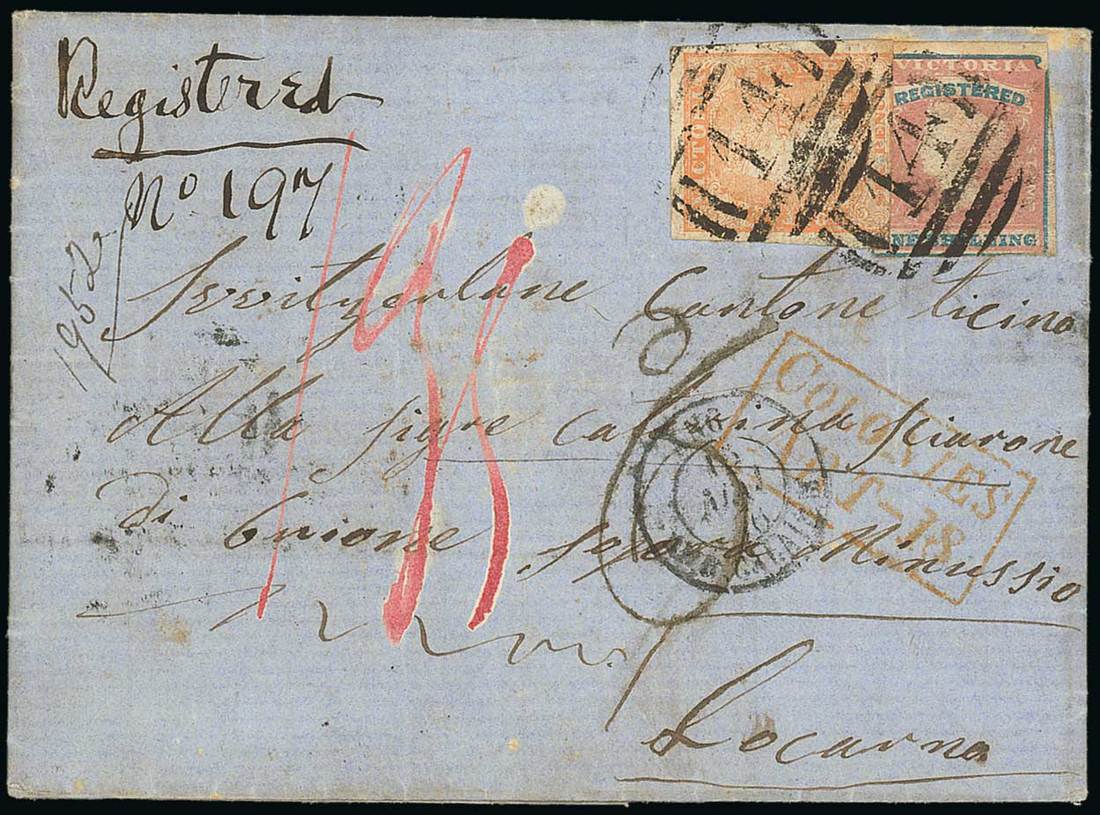 Registered
No 197
1952
CTORIA
VICTORIA
REGISTERED
NE SHILLING
14
14
Switzerlane Cantone Ticino
Alla sigre Catterina Sciarone
di Brione sopra Minussio
Locarno
COLONIES
ART-18